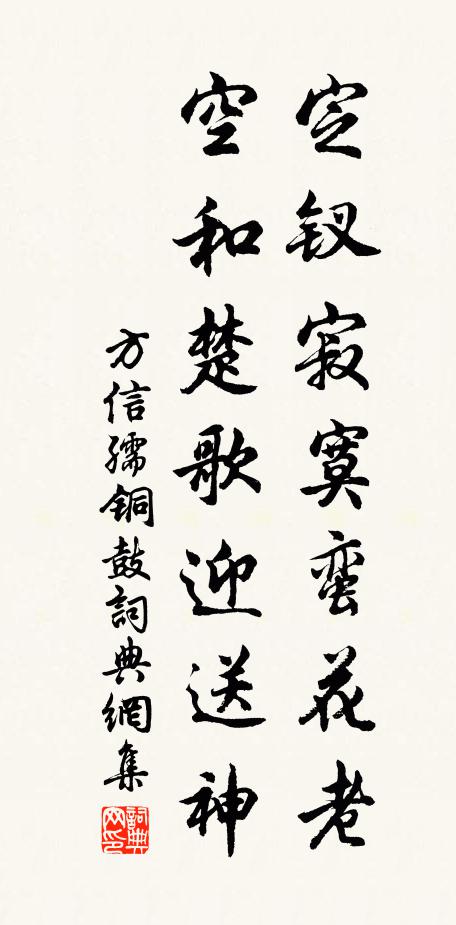 宝钗寂寞蛮花老
空和楚歌迎送神
方信孺铜鼓詞典網集
詞典网印